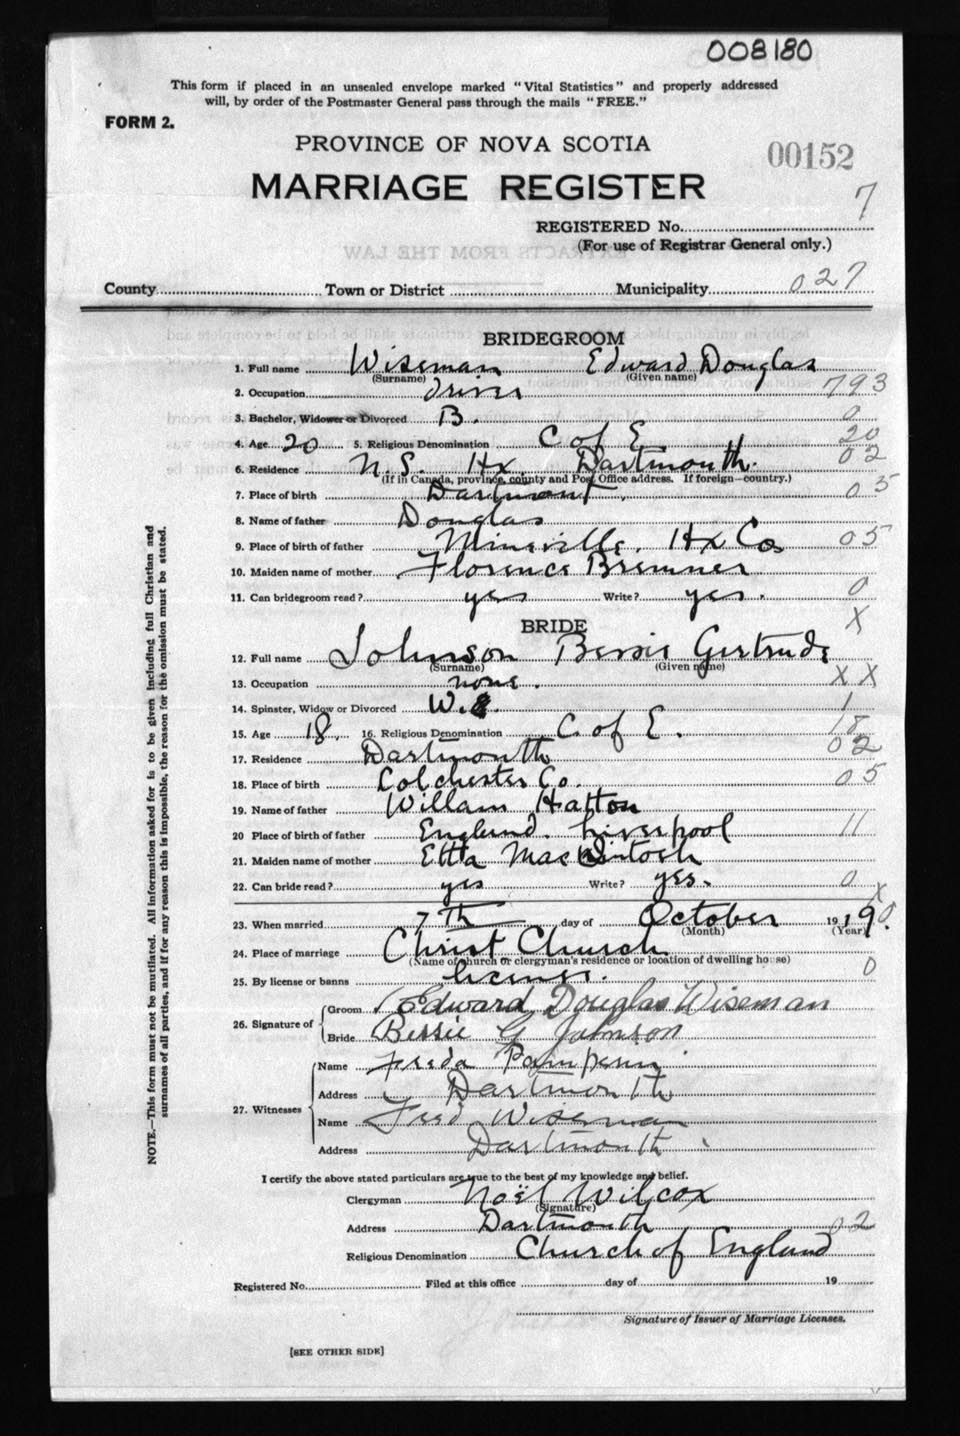 008180
This form if placed in an unsealed envelope marked "Vital Statistics" and properly addressed
will, by order of the Postmaster General pass through the mails "FREE."
FORM 2.
PROVINCE OF NOVA SCOTIA
00152
MARRIAGE REGISTER
7
REGISTERED No.
(For use of Registrar General only.)
County Town or District Municipality 027
BRIDEGROOM
1. Full name Wiseman Edward Douglas
(Surname) (Given name)
2. Occupation driver 793
3. Bachelor, Widower or Divorced B. 0
4. Age 20 5. Religious Denomination C of E 20
6. Residence N.S. Hx. Dartmouth. 02
(If in Canada, province, county and Post Office address. If foreign—country.)
7. Place of birth 05
8. Name of father Douglas
9. Place of birth of father Mineville. Hx Co 05
10. Maiden name of mother Florence Bremner
11. Can bridegroom read? yes Write? yes. 0
BRIDE X
12. Full name Johnson Bessie Gertrude
(Surname) (Given name)
13. Occupation none. X X
14. Spinster, Widow or Divorced W. 1
15. Age 18. 16. Religious Denomination C. of E. 18
17. Residence Dartmouth 02
18. Place of birth Colchester Co. 05
19. Name of father Willam Hatton
20 Place of birth of father England. Liverpool 11
21. Maiden name of mother Etta MacKintosh
22. Can bride read? yes Write? yes. 0
X
23. When married 7th day of October 1919. 0
(Month) (Year)
24. Place of marriage Christ Church
(Name of church or clergyman's residence or location of dwelling house) 0
25. By license or banns license.
26. Signature of Groom Edward Douglas Wiseman
Bride Bessie G Johnson
27. Witnesses Name Freda
Address Dartmouth
Name Fred Wiseman
Address Dartmouth
I certify the above stated particulars are true to the best of my knowledge and belief.
Clergyman Noël Wilcox
(Signature)
Address Dartmouth 02
Religious Denomination Church of England
Registered No. Filed at this office day of 19
Signature of Issuer of Marriage Licenses.
[SEE OTHER SIDE]
NOTE.—This form must not be mutilated. All information asked for is to be given including full Christian and
surnames of all parties, and if for any reason this is impossible, the reason for the omission must be stated.